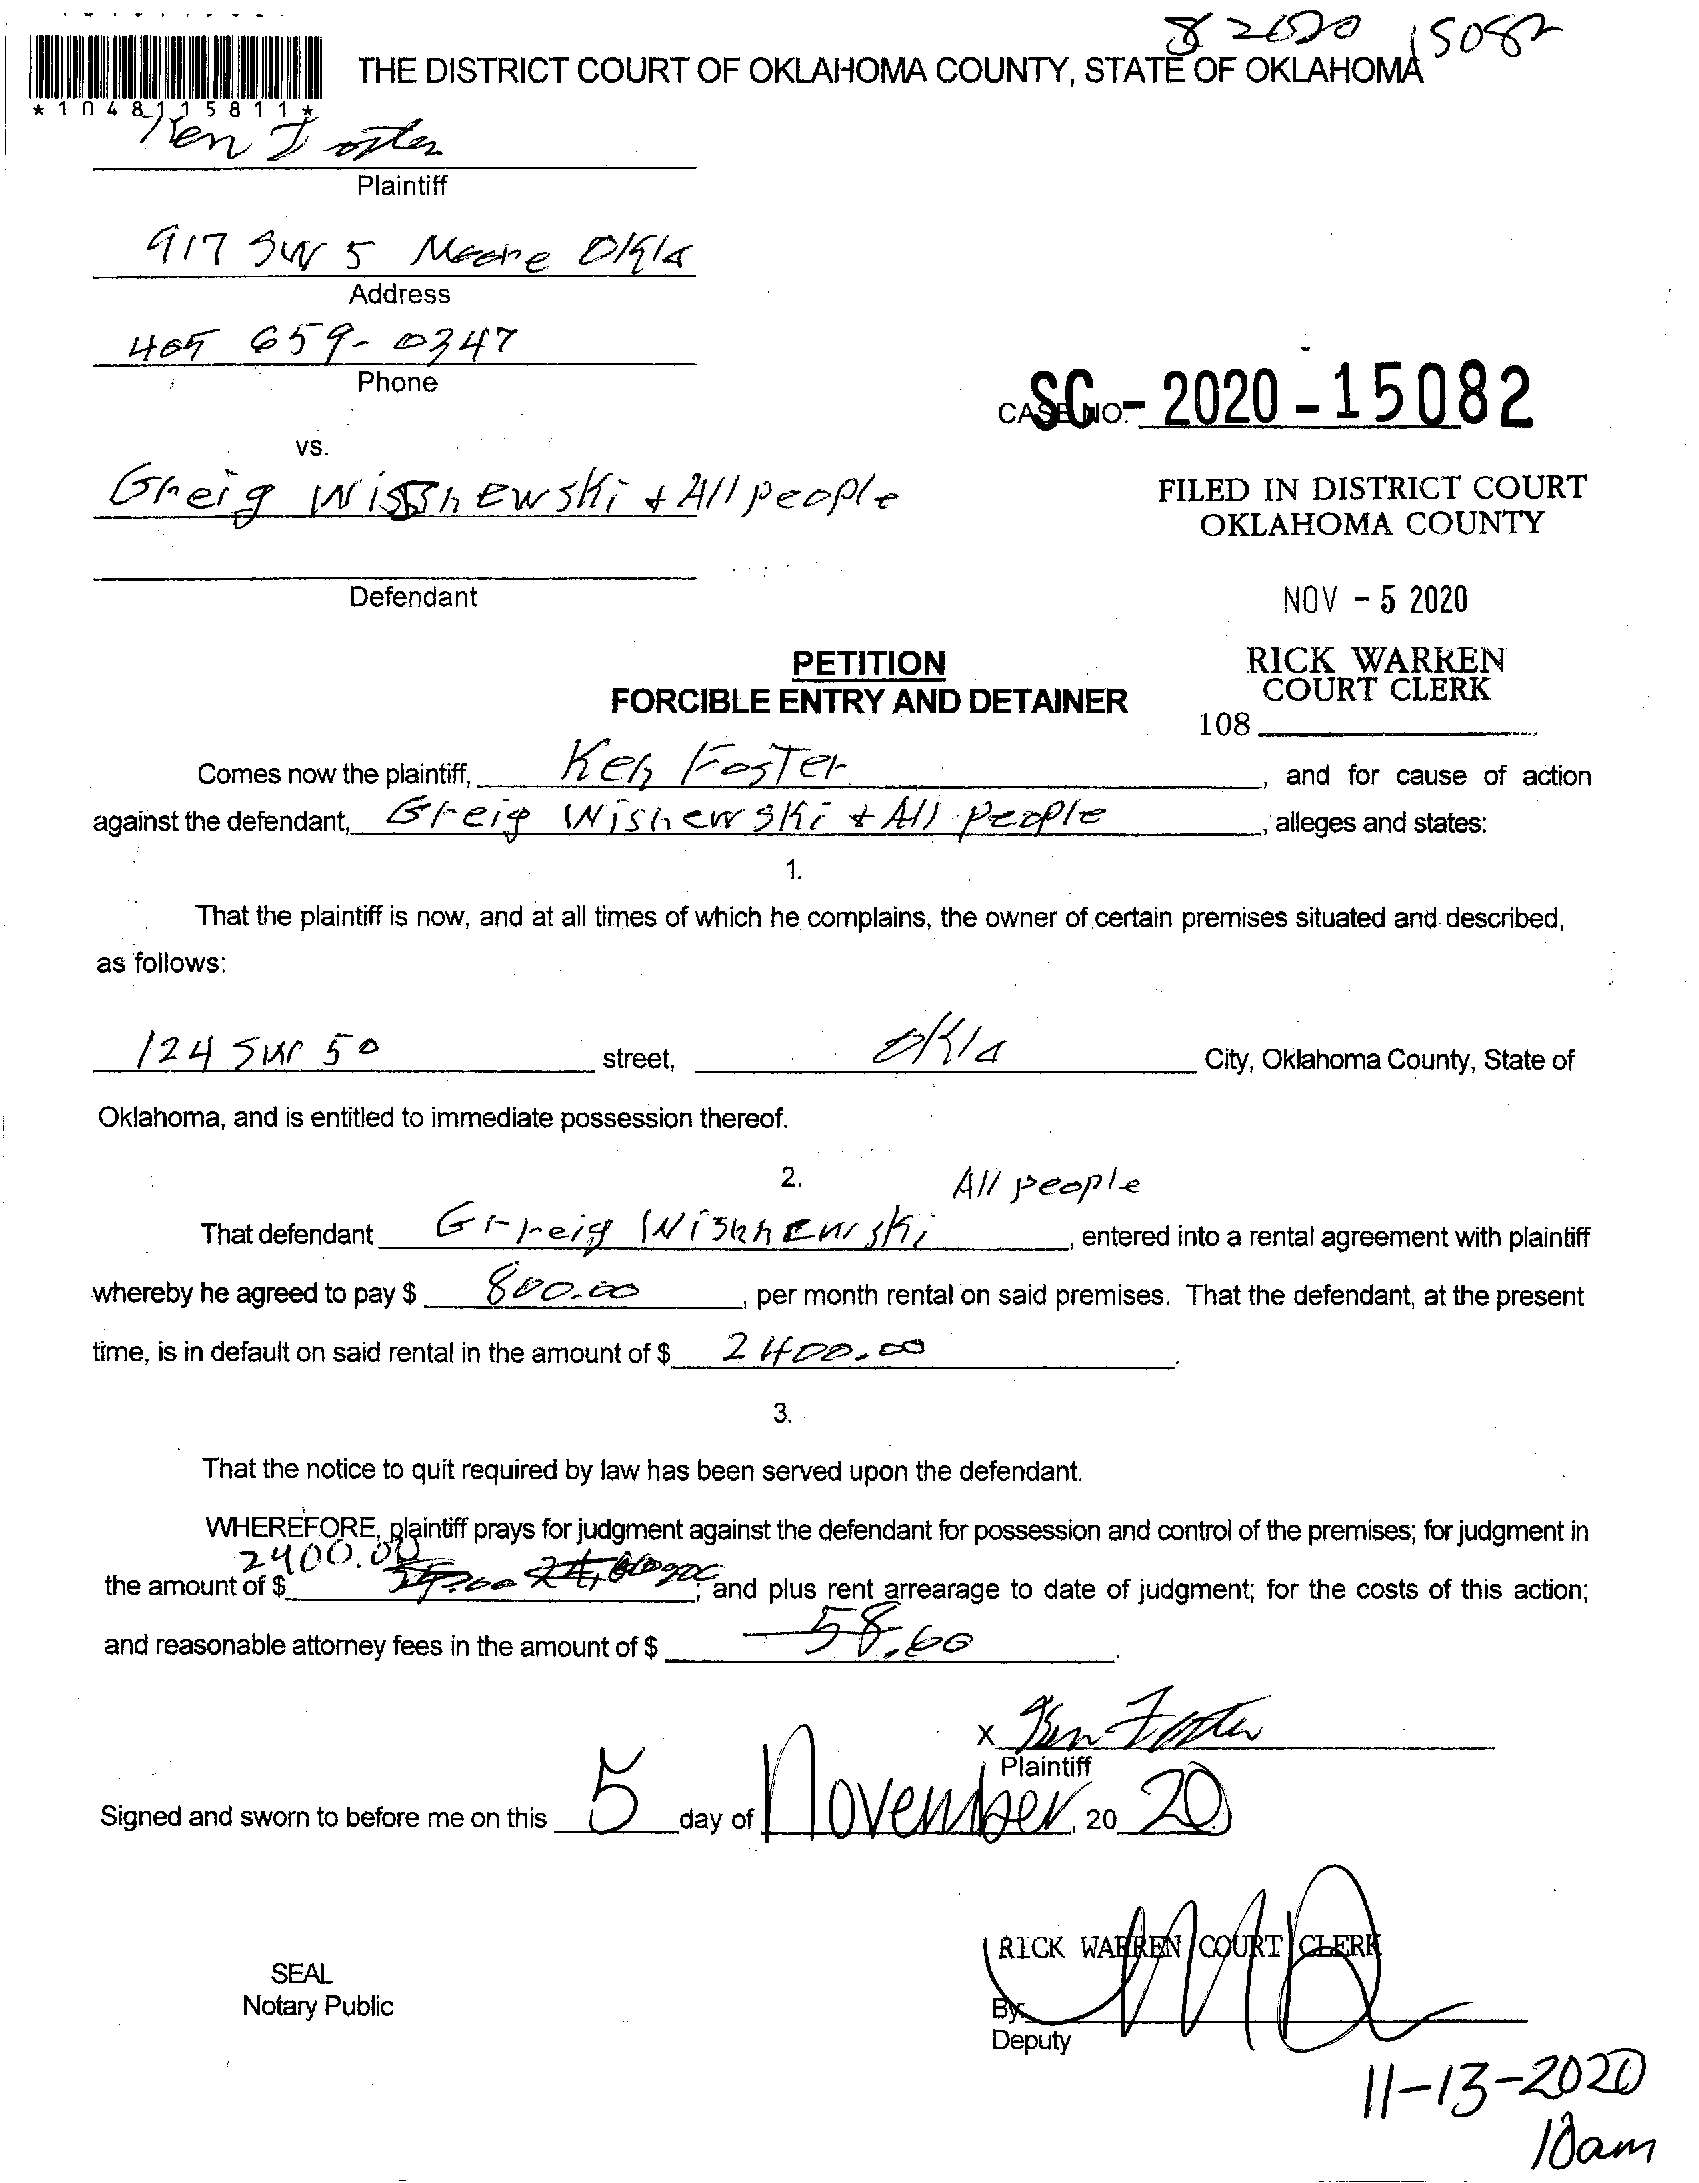 15082
THE DISTRICT COURT OF OKLAHOMA COUNTY, STATE OF OKLAHOMA
*1048115811*
Ken Foster
Plaintiff
917 SW 5 Moore Okla
Address
405 659-0347
Phone
CASE NO. SC - 2020 - 15082
vs.
Greig Wisshewski + All people
FILED IN DISTRICT COURT
OKLAHOMA COUNTY
Defendant
NOV - 5 2020
PETITION
FORCIBLE ENTRY AND DETAINER
RICK WARREN
COURT CLERK
108
Comes now the plaintiff, Ken Foster, and for cause of action
against the defendant, Greig Wishewski + All people, alleges and states:
1.
That the plaintiff is now, and at all times of which he complains, the owner of certain premises situated and described,
as follows:
124 SW 50 street, Okla City, Oklahoma County, State of
Oklahoma, and is entitled to immediate possession thereof.
2.
All people
That defendant Grreig Wishhewski, entered into a rental agreement with plaintiff
whereby he agreed to pay $ 800.00, per month rental on said premises. That the defendant, at the present
time, is in default on said rental in the amount of $ 2400.00.
3.
That the notice to quit required by law has been served upon the defendant.
WHEREFORE, plaintiff prays for judgment against the defendant for possession and control of the premises; for judgment in
the amount of $ 2400.00; and plus rent arrearage to date of judgment; for the costs of this action;
and reasonable attorney fees in the amount of $ 58.60.
x Ken Foster
Plaintiff
Signed and sworn to before me on this 5 day of November, 20 20
RICK WARREN COURT CLERK
SEAL
Notary Public
By
Deputy
11-13-2020
10am